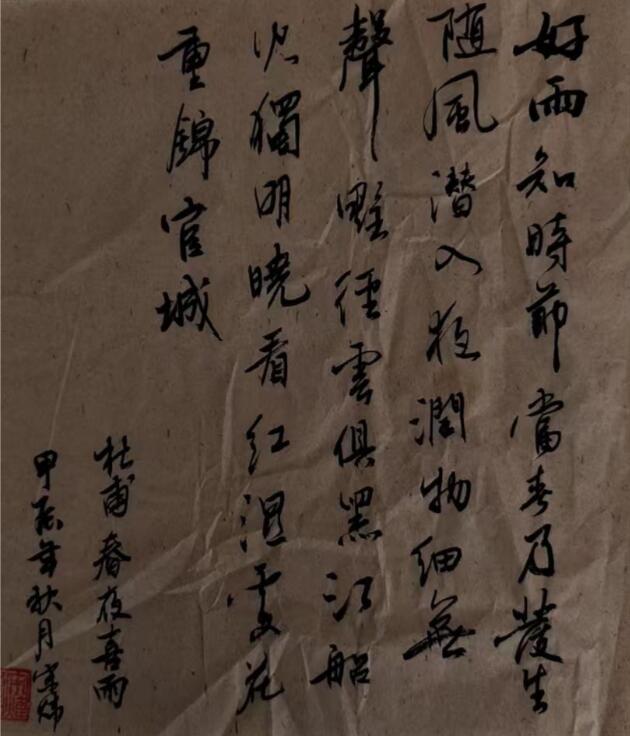 好雨知時節當春乃發生
随風潜入夜潤物細無
聲野徑雲俱黑江船
火獨明曉看紅濕處花
重錦官城
杜甫春夜喜雨
甲辰年秋月